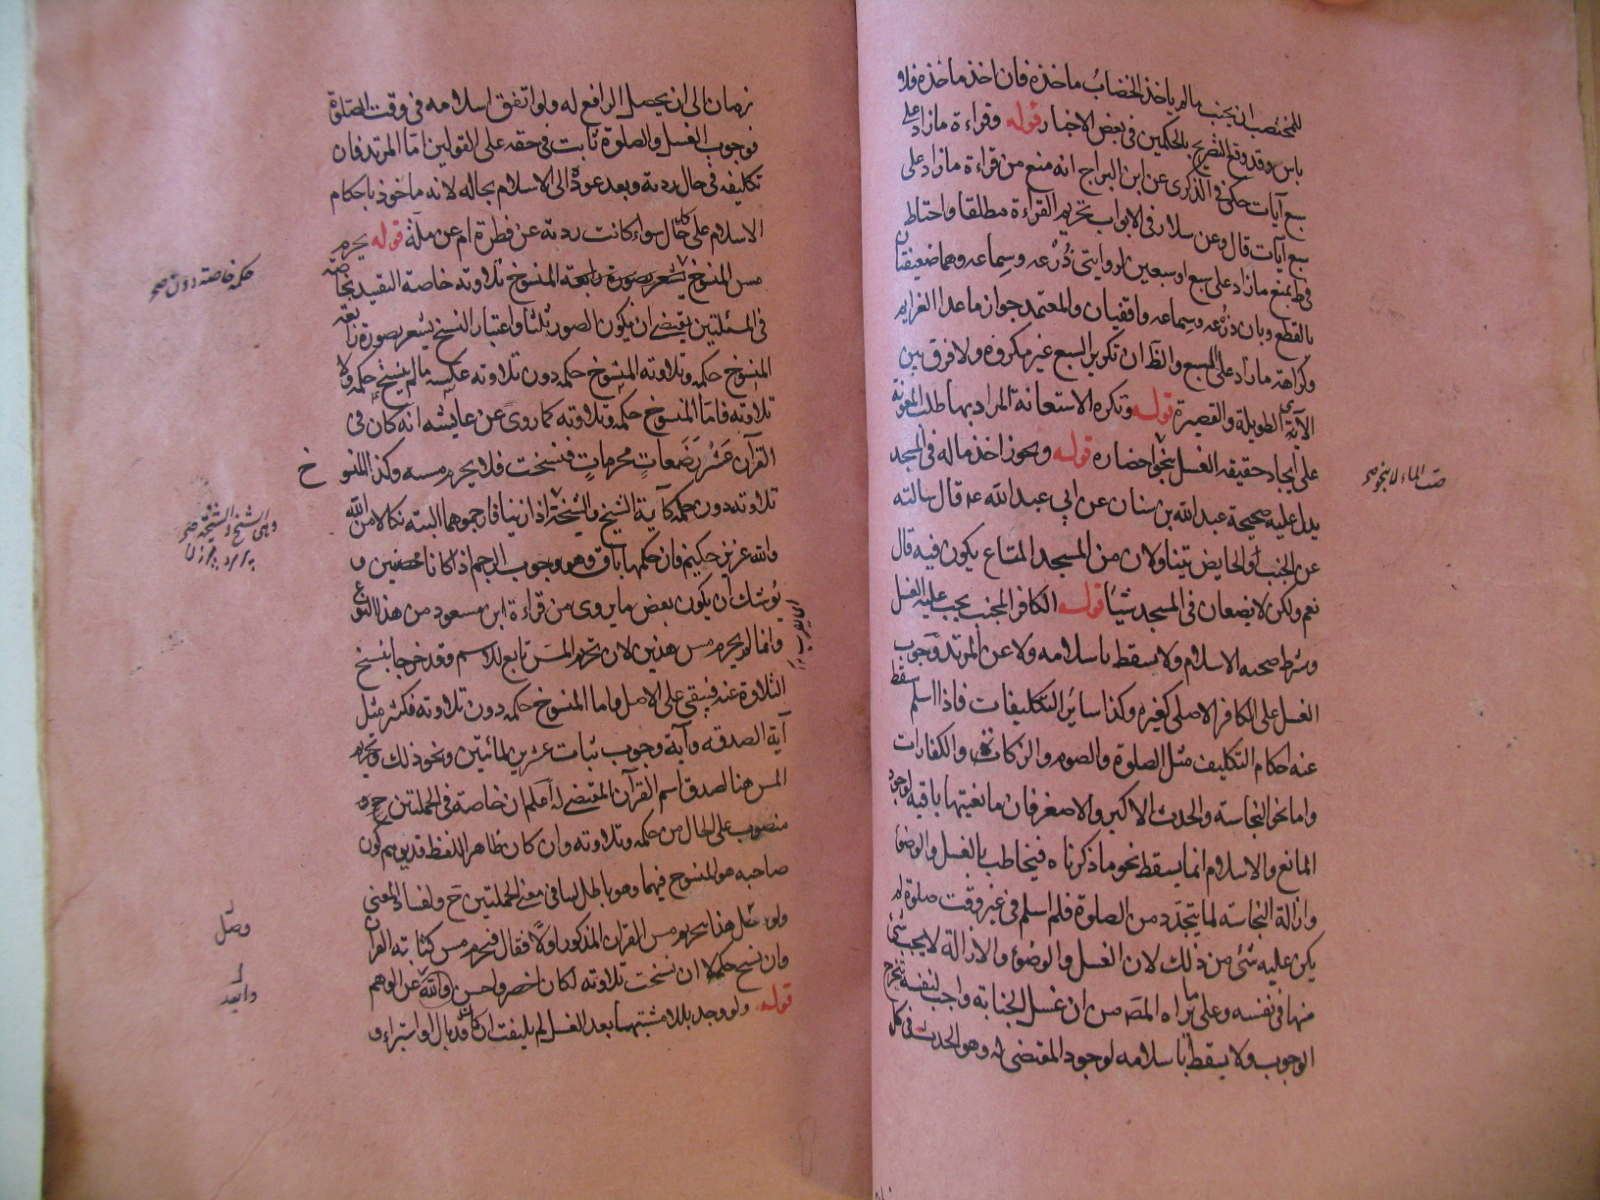 للمختضب ان يجنب ما لم ياخذ الخضاب ماخذه فان اخذ ماخذه فلا
باس وقد وقع التصريح بالحكمين في بعض الاخبار قوله وقراءة مازاد على
سبع آيات حكى في الذكرى عن ابن البراج انه منع من قراءة مازاد على
سبع آيات قال وعن سلار في الابواب تحريم القراءة مطلقا واحتاط
في ط بمنع مازاد على سبع او سبعين لروايتي زرعه وسماعه وهما ضعيفتان
بالقطع وبان زرعه وسماعه واقفيان والمعتمد جواز ماعدا العزايم
وكراهة مازاد على السبع والظ ان تكرير السبع غير مكروه ولا فرق بين
الآية الطويلة والقصيرة قوله وتكره الاستعانة المراد بها طلب المعونة
على ايجاد حقيقه الغسل بنحو احضاره قوله ويجوز اخذ ماله في المسجد
يدل عليه صحيحة عبدالله بن سنان عن ابي عبدالله ع قال سالته
عن الجنب والحايض يتناولان من المسجد المتاع يكون فيه قال
نعم ولكن لا يضعان في المسجد شيئا قوله الكافر المجنب يجب عليه الغسل
وشرط صحته الاسلام ولا يسقط باسلامه ولا عن المرتد وجوب
الغسل على الكافر الاصلي كغيره وكذا ساير التكليفات فاذا اسلم سقط
عنه احكام التكليف مثل الصلوة والصوم والزكاة والكفارات
واما نحو النجاسة والحدث الاكبر والاصغر فان مانعيتها باقيه لوجود
المانع والاسلام انما يسقط نحو ما ذكرناه فيخاطب بالغسل والوضوء
وازالة النجاسة لما يتجدد من الصلوة فلم اسلم في غير وقت صلوة لم
يكن عليه شئ من ذلك لان الغسل والوضوء والازالة لا يجب شئ
منها في نفسه وعلى ما يراه المص من ان غسل الجنابة واجب لنفسه يتخرج
الوجوب ولا يسقط باسلامه لوجود المقتضى له وهو الحدث في كل
زمان الى ان يحصل الرافع له ولو اتفق اسلامه في وقت الصلوة
فوجوب الغسل والصلوة ثابت في حقه على القولين امّا المرتد فان
تكليفه في حال ردته وبعد عوده الى الاسلام بحاله لانه ماخوذ باحكام
الاسلام على كل حال سواء كانت ردته عن فطرة ام عن ملّة قوله يحرم
مس المنسوخ تلاوته خاصة التقييد بخاصة
في المسئلتين يقتضي ان يكون الصور ثلثا واعتبار النسخ يشعر بصورة رابعة
المنسوخ حكمه وتلاوته المنسوخ حكمه دون تلاوته عكسه مالم ينسخ حكمه ولا
تلاوته فامّا المنسوخ حكمه وتلاوته كما روى عن عايشه انه كان في
القرآن عَشْرُ رَضَعاتٍ محرماتٍ فنسخت فلا يحرم مسه وكذا المنسوخ
تلاوته دون حكمه كآية الشيخ والشيخة اذا زنيا فارجموهما البتة نكالا من الله
والله عزيز حكيم فان حكمها باق وهو وجوب الرجم اذا كانا محصنين و
يوشك ان يكون بعض ما يروى من قراءة ابن مسعود من هذا النوع
وانما لم يحرم مس هذين لان تحريم المس تابع للاسم وقد خرجا بنسخ
التلاوة عنه فيبقى على الاصل واما المنسوخ حكمه دون تلاوته فكثير مثل
آية الصدقه وآية وجوب ثبات عشرين لمائتين ونحو ذلك وتحريم
المس هنا لصدق اسم القرآن المقتضي له اعلم ان خاصة في الجملتين
منصوب على الحال من حكمه وتلاوته وان كان ظاهر اللفظ قد يوهم كون
صاحبه هو المنسوخ فيهما وهو باطل معنى الجملتين ح ولفساد المعنى
ولو هنا بتحريم مس القرآن المذكور اولا فقال فيحرم مس كتابة القرآن
وان نسخ حكمه لا ان نسخت تلاوته لكان اخصر واحسن عن الوهم
قوله ولو وجد بللا مشتبها بعد الغسل لم يلتفت ان كان قد بال او استبراء و
حكمه خاصته دون صح
وهي الشيخ والشيخة صح